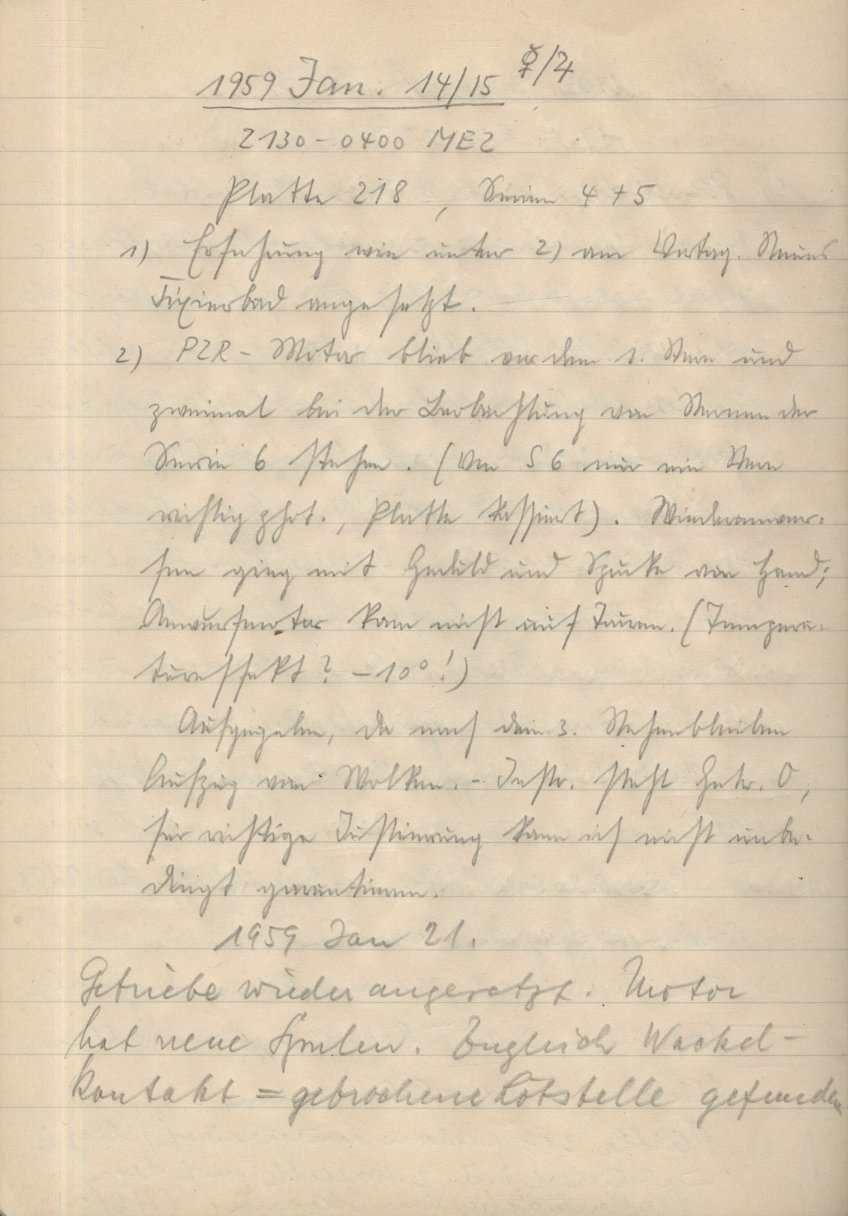 1959 Jan. 14/15 ☿/♃
2130 – 0400 MEZ
Platte 218, Serien 4 + 5
1) Erfahrung wie unter 2) am Vortag. Neues
Fixierbad angesetzt.
2) PZR - Motor blieb vor dem 1. Stern und
zweimal bei der Beobachtung von Sternen der
Serie 6 stehen. (Von S 6 nur ein Stern
richtig phot., Platte kassiert). Wiederanwer-
fen ging mit Geduld und Spucke von Hand;
Anwurfmotor kam nicht auf Touren. (Tempera-
tureffekt? – 10° !)
Aufgegeben, da nach dem 3. Stehenbleiben
Aufzug von Wolken. - Instr. steht 0,
für richtige Justierung kann ich nicht unbe-
dingt garantieren.
1959 Jan 21.
Getriebe wieder angesetzt. Motor
hat neue Spulen. Zugleich Wackel-
kontakt = gebrochene Lötstelle gefunden